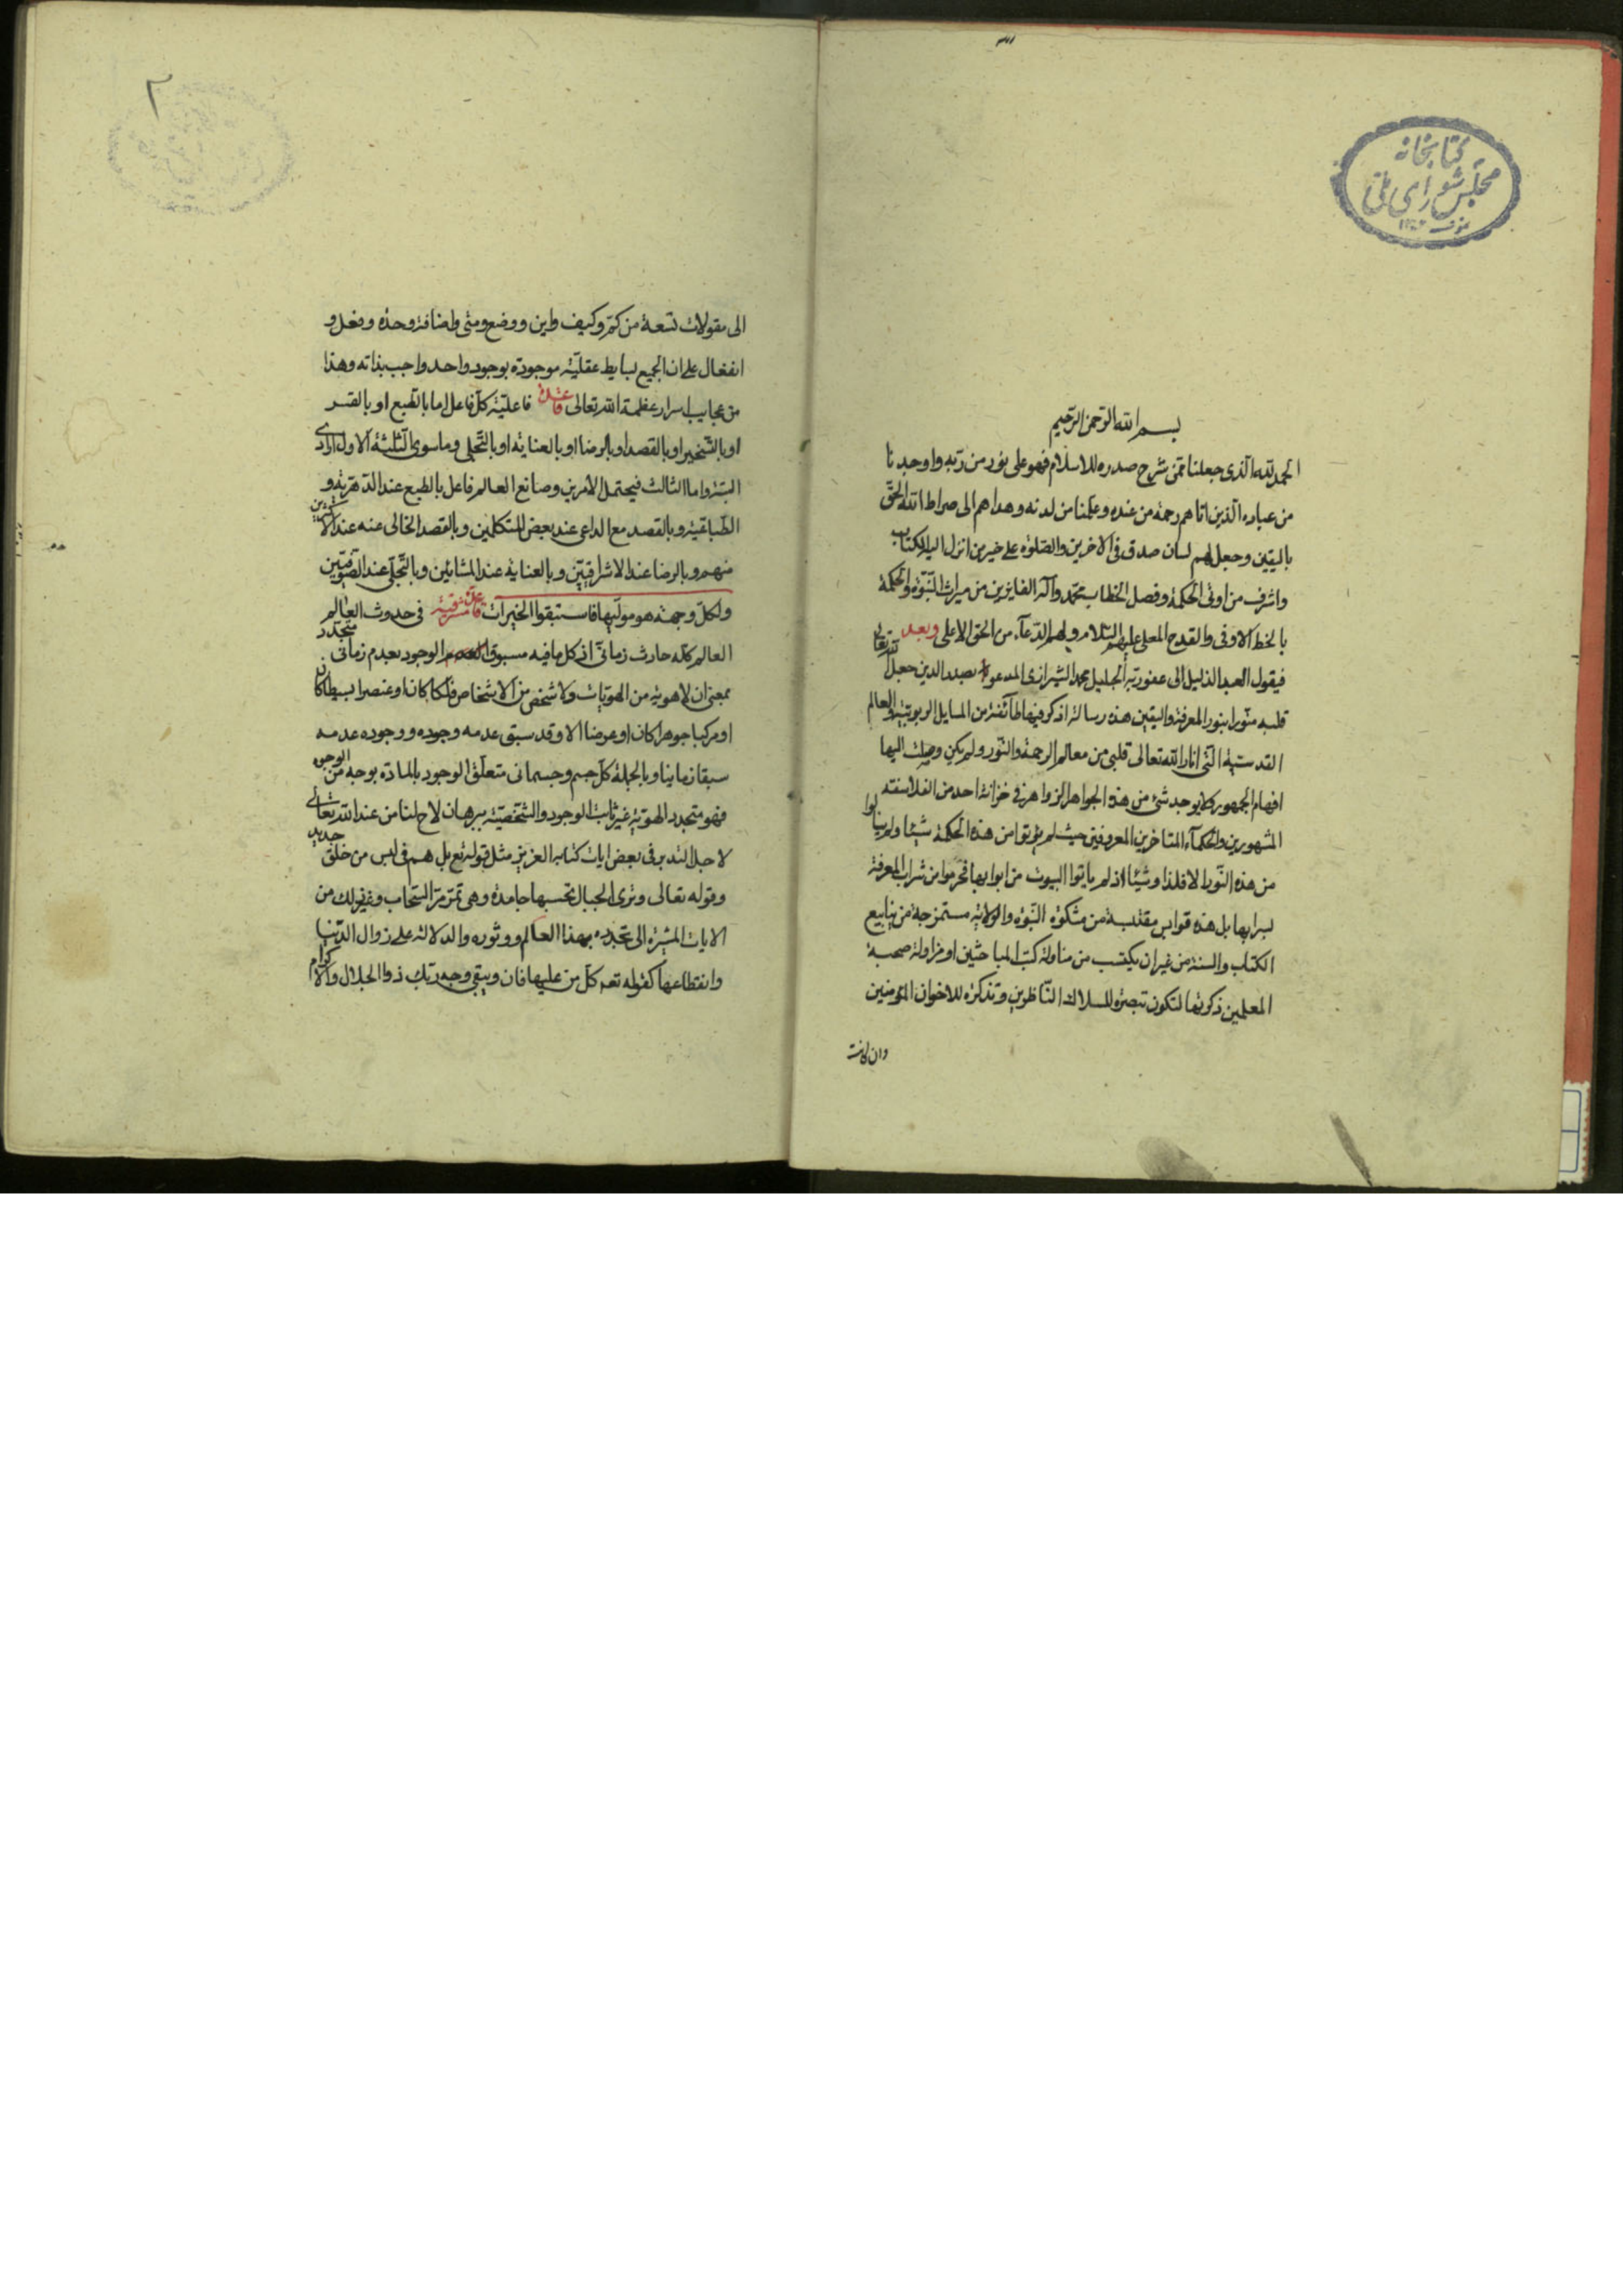 كتابخانه
مجلس شورای ملی
بسم الله الرحمن الرحيم
الحمد لله الذى جعلنا ممن شرح صدره للاسلام فهو على نور من ربه واوجدنا
من عباده الذين اتاهم رحمة من عنده وعلمنا من لدنه وهداهم الى صراط الله الحق
باليقين وجعل لهم لسان صدق فى الاخرين والصلوة على خير من انزل اليه الكتاب
واشرف من اوتى الحكمة وفصل الخطاب محمد وآله الفايزين من ميراث النبوة والحكمة
بالخط الاوفى والقدح المعلى عليهم السلام ولهم الدعاء من الحق الاعلى وبعد
فيقول العبد الذليل الى عفو ربه الجليل محمد الشيرازى المدعو بصدر الدين جعل الله تعالى
قلبه منورا بنور المعرفة واليقين هذه رسالة اذكر فيها طائفة من المسايل الربوبية والمعالم
القدسية التى انار الله تعالى قلبى من معالم الرحمة والنور ولم يكن وصلت اليها
افهام الجمهور ولا يوجد شئ من هذه الجواهر الزواهر فى خزانة احد من الفلاسفة
المشهورين والحكماء المتاخرين المعروفين حيث لم يؤتوا من هذه الحكمة شيئا ولم ينالوا
من هذه النور الا اذ لم ياتوا البيوت من ابوابها فحرموا من شراب المعرفة
بسرابها بل هذه قوابس مقتبسة من مشكوة النبوة والولاية مستخرجة من ينابيع
الكتاب والسنة من غير ان يكتسب من مناولة كتب الباحثين او مزاولة صحبة
المعلمين ذكرتها لتكون تبصرة للسلاك الناظرين وتذكرة للاخوان المؤمنين
وان كانت
٢
الى مقولات تسعة من كم وكيف واين ووضع ومتى واضافة وجدة وفعل و
انفعال على ان الجميع بسايط عقلية موجودة بوجود واحد واجب بذاته وهذا
من عجايب اسرار عظمة الله تعالى قاعدة فاعلية كل فاعل اما بالطبع او بالقسر
او بالتسخير او بالقصد او بالرضا او بالعناية او بالتجلى وما سوى الثلثة الاول ارادى
البتة واما الثالث فيحتمل الامرين وصانع العالم فاعل بالطبع عند الدهرية و
الطباعية وبالقصد مع الداعى عند بعض المتكلمين وبالقصد الخالى عنه عند الاكثرين
منهم وبالرضا عند الاشراقيين وبالعناية عند المشائين وبالتجلى عند الصوفيين
ولكل وجهة هو موليها فاستبقوا الخيرات قاعدة مشرقية فى حدوث العالم
العالم كله حادث زمانى اذ كل ما فيه مسبوق الوجود بعدم زمانى متجدد
بمعنى ان لا هوية من الهويات ولا شخص من الاشخاص فلكا كان او عنصرا بسيطا كان
او مركبا جوهرا كان او عرضا الا وقد سبق عدمه وجوده ووجوده عدمه
سبقا زمانيا وبالجملة كل جسم وجسمانى متعلق الوجود بالمادة بوجه من الوجوه
فهو متجدد الهوية غير ثابت الوجود والشخصية ببرهان لاح لنا من عند الله تعالى
لاجل التدبر فى بعض ايات كتابه العزيز مثل قوله تع بل هم فى لبس من خلق جديد
وقوله تعالى وترى الجبال تحسبها جامدة وهى تمر مر السحاب وغير ذلك من
الايات المشيرة الى تجدد هذا العالم ودثوره والدلالة على زوال الدنيا
وانقطاعها كقوله تعم كل من عليها فان ويبقى وجه ربك ذو الجلال والاكرام